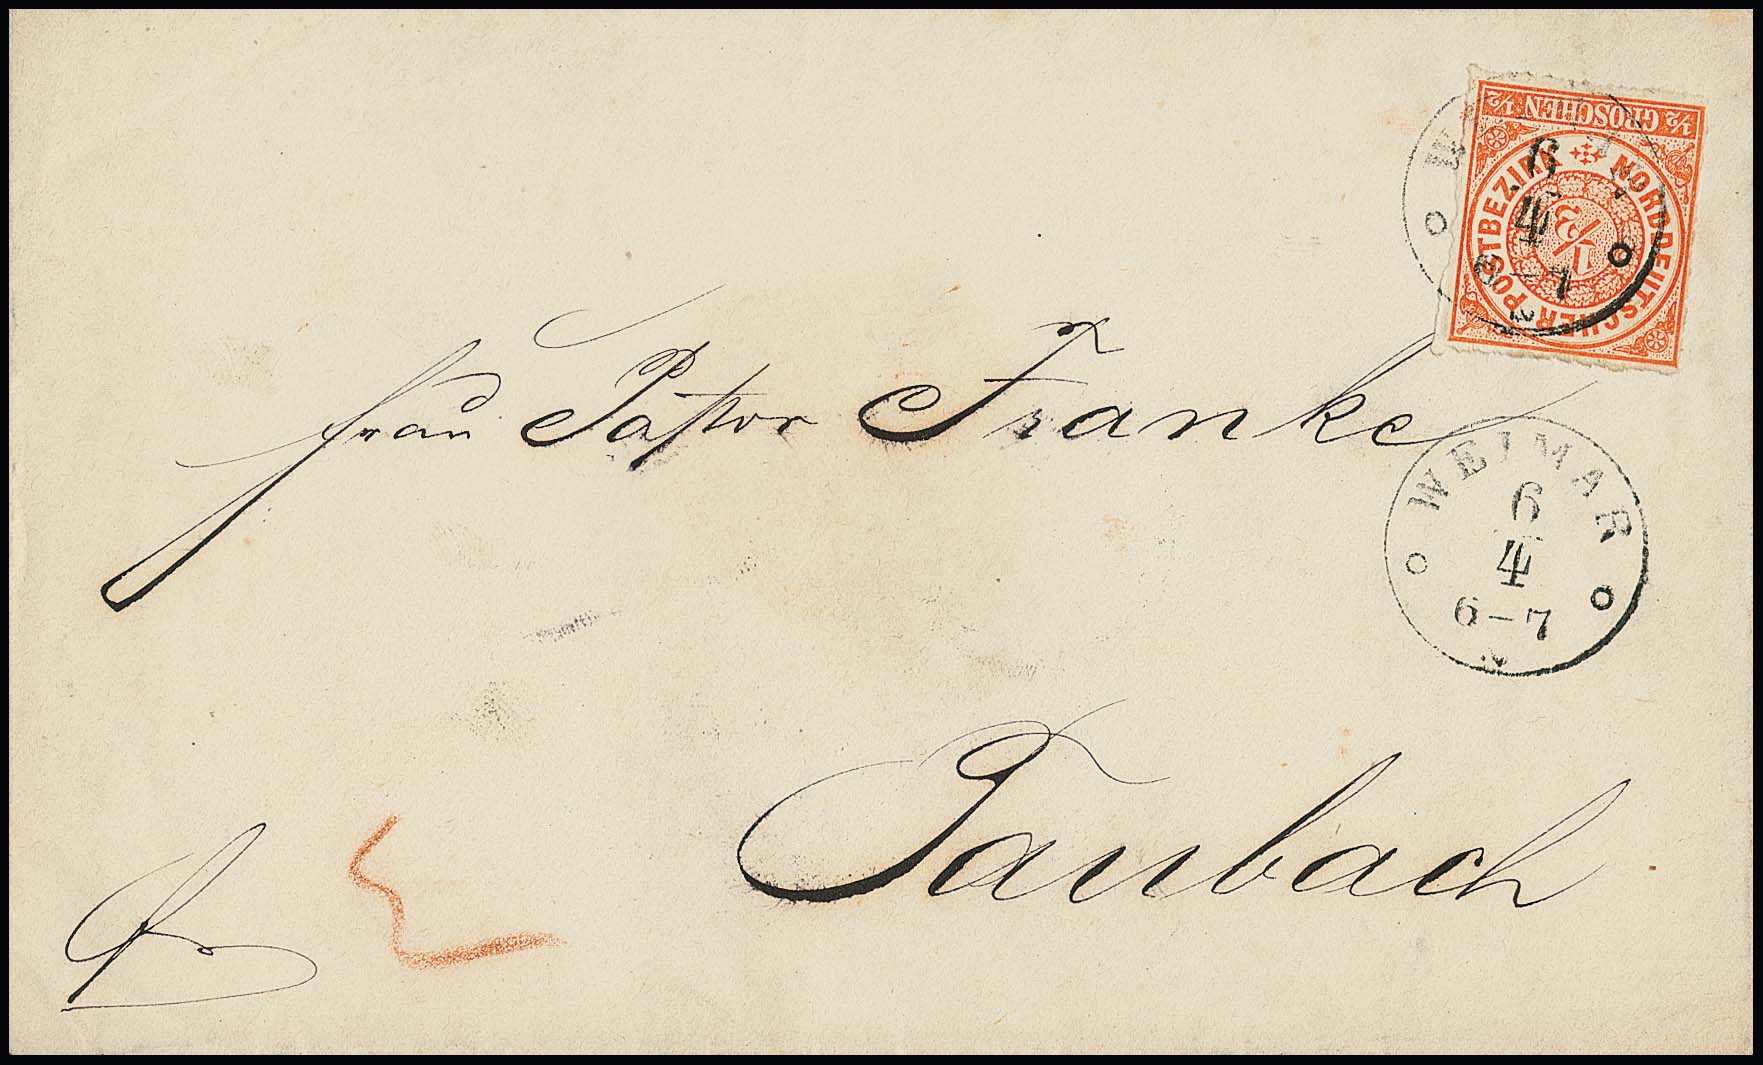 ½ GROSCHEN ½
NORDDEUTSCHER POSTBEZIRK
1/2
WEIMAR
6
4
6-7
N2
frau Pastor Franke
WEIMAR
6
4
6-7
Taubach
fr